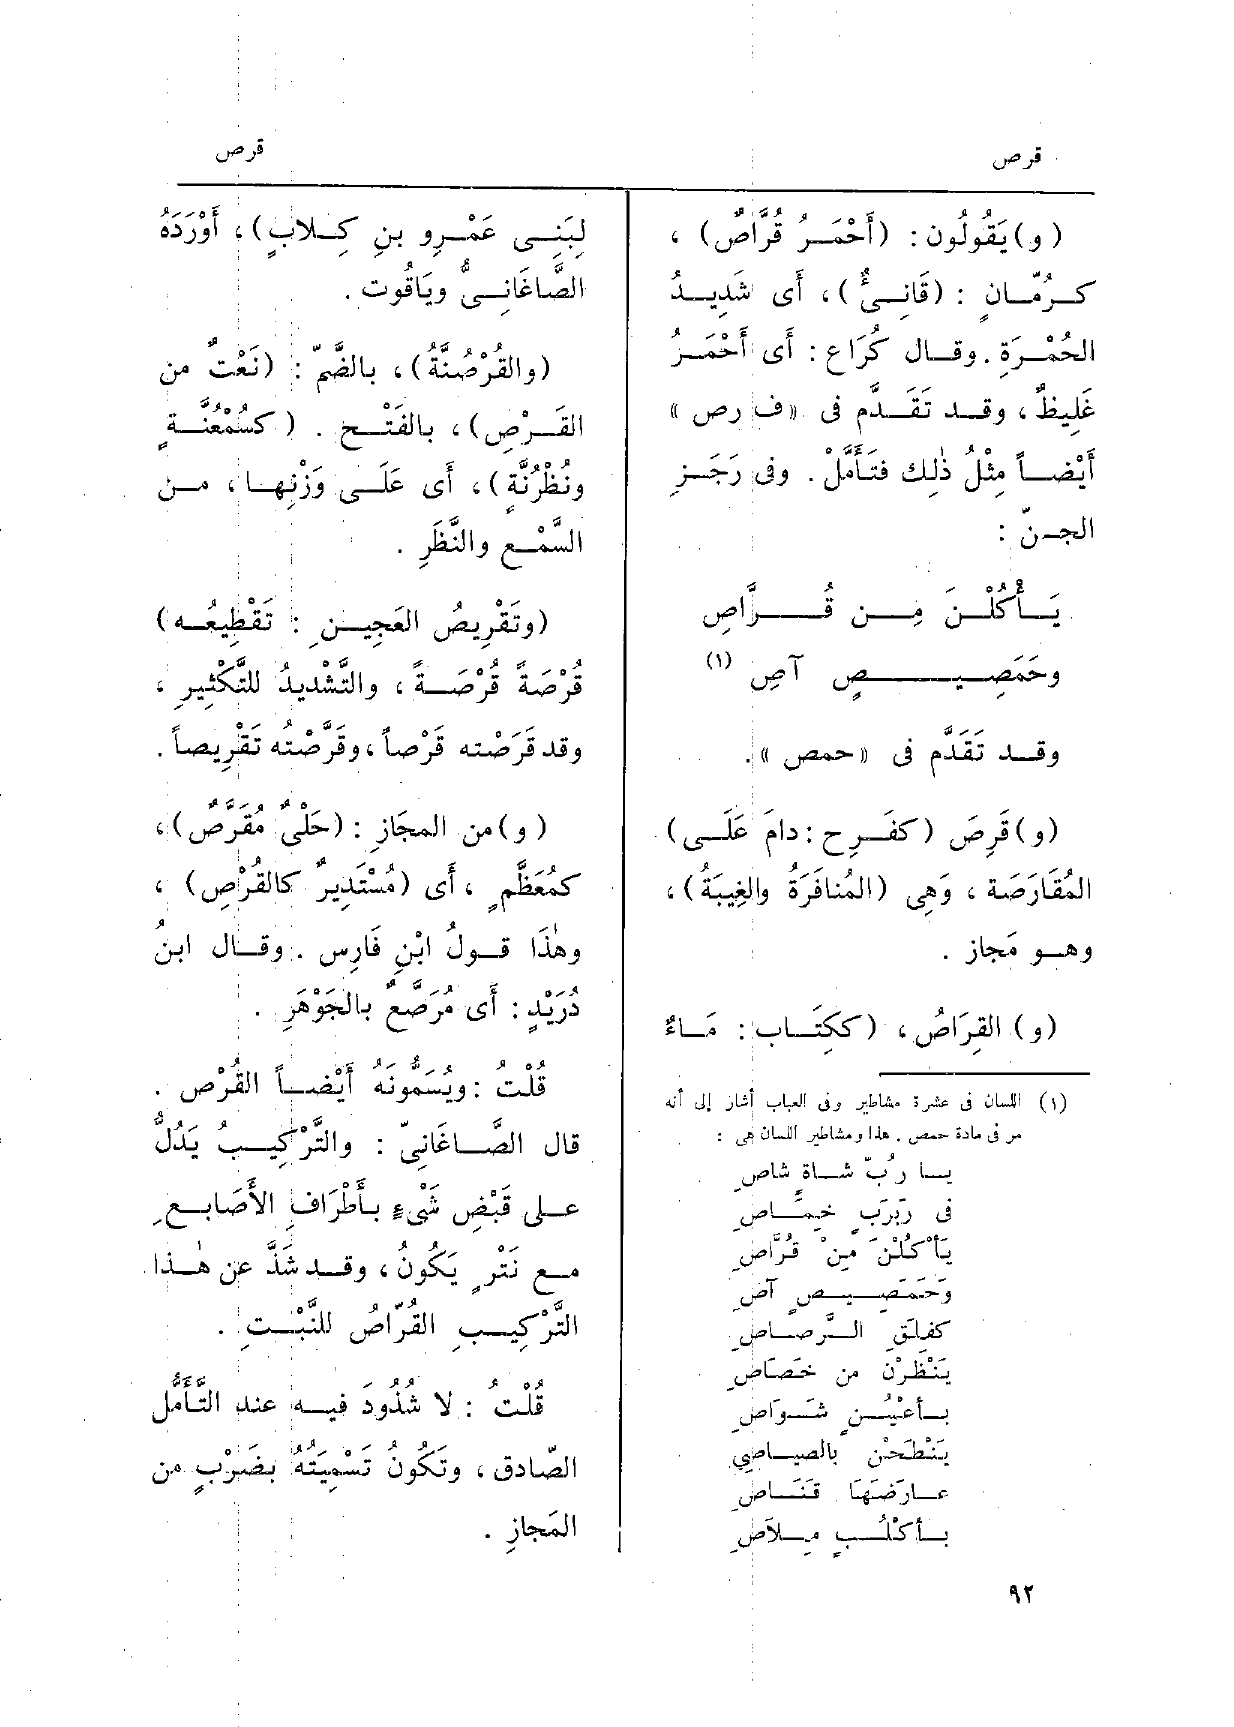 قرص
قرص
(و) يَقُولُون: (أَحْمَرُ قُرَّاصٌ)،
كرُمّانٍ: (قَانِىُّ)، أَى شَدِيدُ
الحُمْرَةِ. وقال كُرَاع: أَى أَحْمَرُ
غَلِيظٌ، وقد تَقَدَّم فى «ف رص»
أَيْضاً مِثْلُ ذٰلِك فتَأَمَّلْ. وفى رَجَزِ
الجنّ:
يَأْكُلْنَ مِن قُرَّاصِ
وحَمَصِيصٍ آصِ (١)
وقد تَقَدَّم فى «حمص».
(و) قَرِصَ (كفَرِح: دامَ عَلَى)
المُقَارَصَة، وَهِى (المُنافَرَةُ والغِيبَةُ)،
وهو مَجاز.
(و) القِرَاصُ، (ككِتَاب: مَاءٌ
(١) اللسان فى عشرة مشاطير وفى العباب أشار إلى أنه
مر فى مادة حمص. هذا ومشاطير اللسان هى:
يا رُبّ شاةٍ شاصِ
فى رَبْرَبٍ خِمَاصِ
يَأْكُلْنَ مِنْ قُرَّاصِ
وَحَمَصِيصٍ آصِ
كفِلَقِ الرَّصاصِ
يَنْظُرْنَ من خَصَاصِ
بأَعْيُنٍ شَوَاصِ
يَنْطَحْن بالصيَاصِي
عارَضَهَا قَنَّاصِ
بأَكْلُبٍ مِلاَصِ
لِبَنِى عَمْرِو بنِ كِلابٍ)، أَوْرَدَهُ
الصَّاغَانِىُّ ويَاقُوت.
(والقُرْصُنَّةُ)، بالضَّمّ: (نَعْتٌ من
القَرْصِ)، بالفَتْح. (كسُمْعُنَّةٍ
ونُظْرُنَّةٍ)، أَى عَلَى وَزْنِها، من
السَّمْعِ والنَّظَرِ.
(وتَقْرِيصُ العَجِينِ: تَقْطِيعُه)
قُرْصَةً قُرْصَةً، والتَّشْدِيدُ للتَّكْثِيرِ،
وقد قَرَصْته قَرْصاً، وقَرَّصْتُه تَقْرِيصاً.
(و) من المجَازِ: (حَلْىٌ مُقَرَّصٌ)،
كمُعَظَّمٍ، أَى (مُسْتَدِيرٌ كالقُرْصِ)،
وهٰذَا قولُ ابْنِ فَارِس. وقال ابنُ
دُرَيْدٍ: أَى مُرَصَّعٌ بالجَوْهَرِ.
قُلْتُ: ويُسَمُّونَهُ أَيْضاً القُرْص.
قال الصَّاغَانِىّ: والتَّرْكِيبُ يَدُلُّ
على قَبْضِ شَىْءٍ بأَطْرَافِ الأَصَابِعِ
مع نَتْرٍ يَكُونُ، وقد شَذَّ عن هٰذا
التَّرْكِيبِ القُرّاصُ للنَّبْتِ.
قُلْتُ: لا شُذُودَ فِيه عند التَّأَمُّل
الصّادق، وتَكُونُ تَسْمِيَتُهُ بضَرْبٍ من
المَجازِ.
٩٢